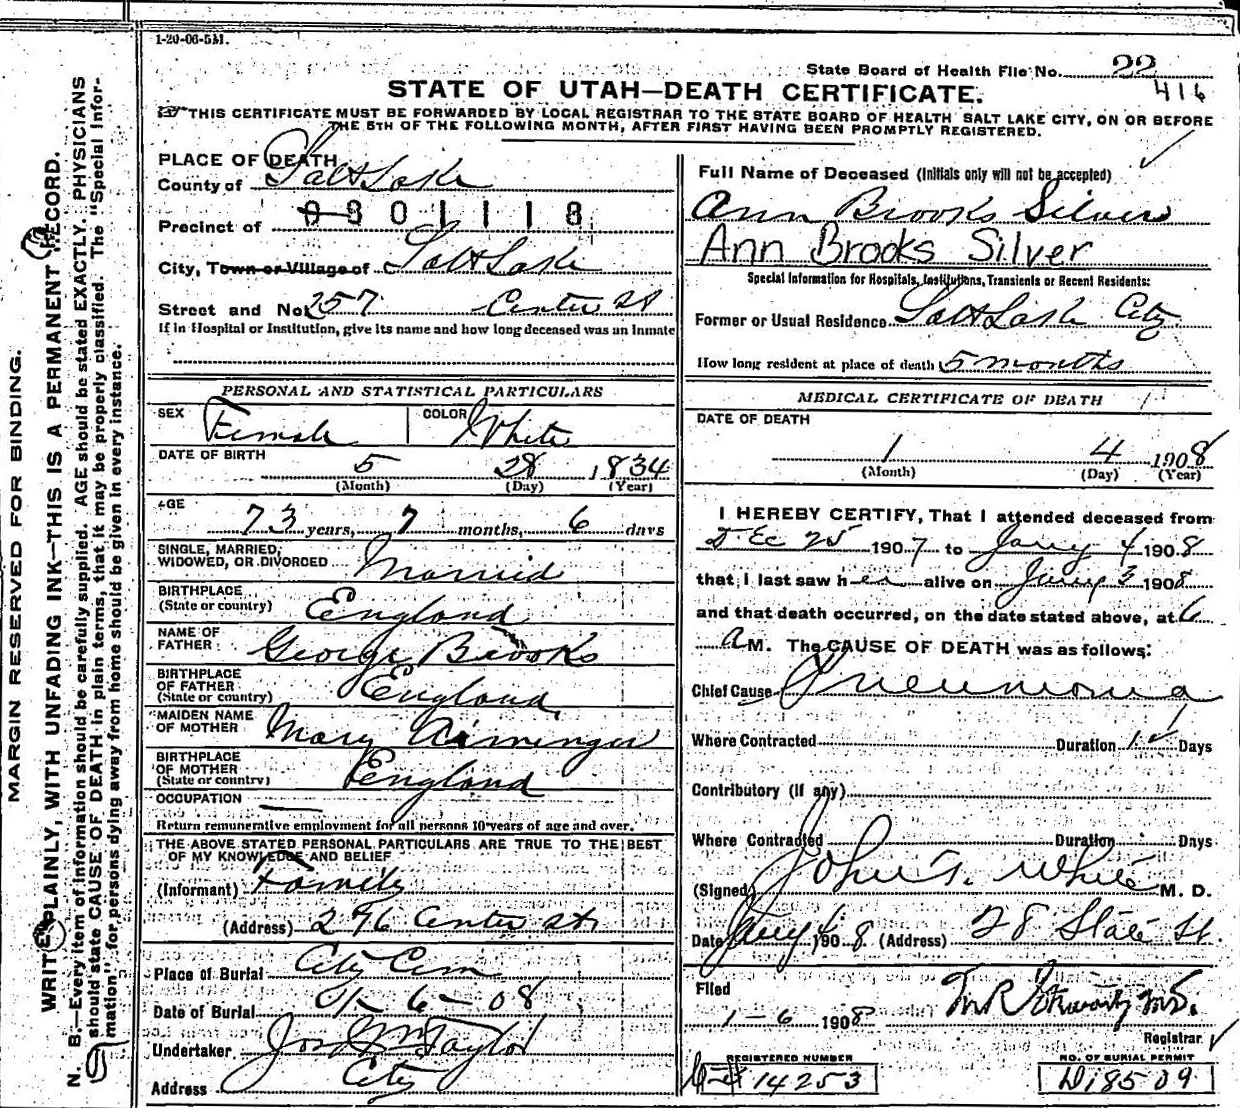 1-20-06-5M.
State Board of Health File No. 22
416
STATE OF UTAH—DEATH CERTIFICATE.
THIS CERTIFICATE MUST BE FORWARDED BY LOCAL REGISTRAR TO THE STATE BOARD OF HEALTH SALT LAKE CITY, ON OR BEFORE
THE 5TH OF THE FOLLOWING MONTH, AFTER FIRST HAVING BEEN PROMPTLY REGISTERED.
MARGIN RESERVED FOR BINDING.
WRITE PLAINLY, WITH UNFADING INK—THIS IS A PERMANENT RECORD.
N. B.—Every item of information should be carefully supplied. AGE should be stated EXACTLY. PHYSICIANS
should state CAUSE OF DEATH in plain terms, that it may be properly classified. The "Special Infor-
mation" for persons dying away from home should be given in every instance.
PLACE OF DEATH
County of Salt Lake
0301118
Precinct of
City, Town or Village of Salt Lake
Street and No. 257 Center St
If in Hospital or Institution, give its name and how long deceased was an inmate
PERSONAL AND STATISTICAL PARTICULARS
SEX Female COLOR White
DATE OF BIRTH 5 28 1834
(Month) (Day) (Year)
AGE
73 years, 7 months, 6 days
SINGLE, MARRIED,
WIDOWED, OR DIVORCED Married
BIRTHPLACE
(State or country) England
NAME OF
FATHER George Brooks
BIRTHPLACE
OF FATHER
(State or country) England
MAIDEN NAME
OF MOTHER Mary
BIRTHPLACE
OF MOTHER
(State or country) England
OCCUPATION
Return remunerative employment for all persons 10 years of age and over.
THE ABOVE STATED PERSONAL PARTICULARS ARE TRUE TO THE BEST
OF MY KNOWLEDGE AND BELIEF
(Informant) Family
(Address) 276 Center St
Place of Burial City Cem
Date of Burial 01-6-08
Undertaker Jos Wm Taylor
Address City
Full Name of Deceased (Initials only will not be accepted)
Ann Brooks Silver
Ann Brooks Silver
Special Information for Hospitals, Institutions, Transients or Recent Residents:
Former or Usual Residence Salt Lake City
How long resident at place of death 5 months
MEDICAL CERTIFICATE OF DEATH
DATE OF DEATH
1 4 1908
(Month) (Day) (Year)
I HEREBY CERTIFY, That I attended deceased from
Dec 25 1907 to Jany 4 1908
that I last saw her alive on Jany 3 1908
and that death occurred, on the date stated above, at 6
A M. The CAUSE OF DEATH was as follows:
Chief Cause Pneumonia
Where Contracted Duration Days
Contributory (if any)
Where Contracted Duration Days
(Signed) John T. White M. D.
Date Jany 4 1908 (Address) 28 State St.
Filed
1-6 1908
Registrar
REGISTERED NUMBER
14253
NO. OF BURIAL PERMIT
D18509